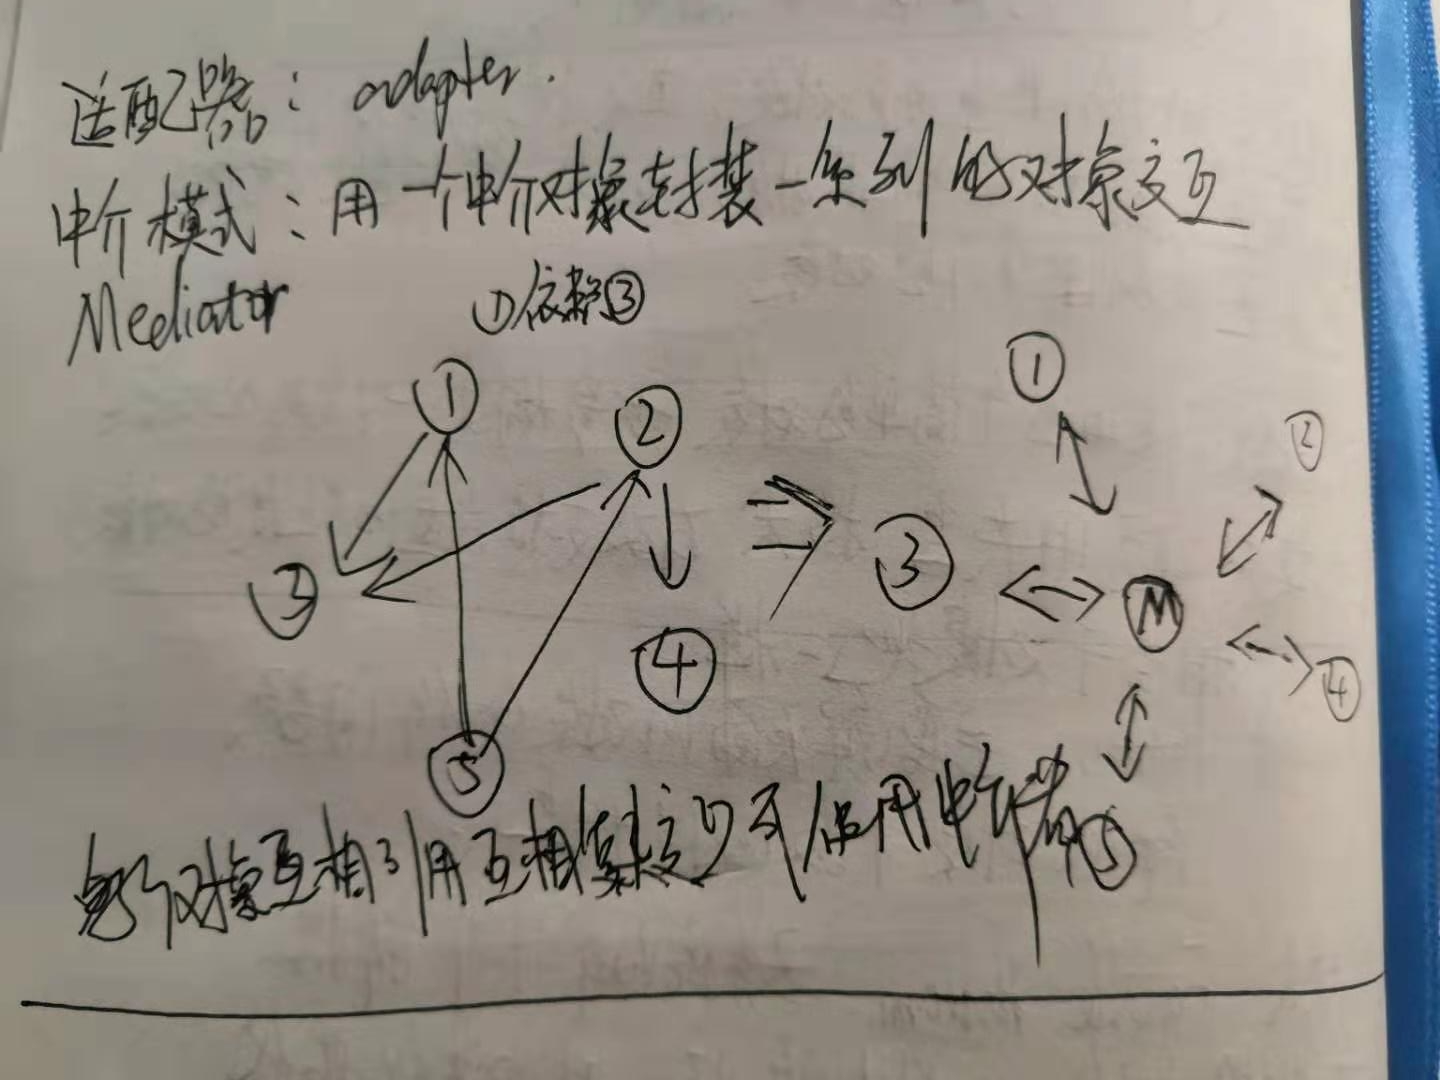 适配器：adapter.
中介模式：用一个中介对象封装一系列的对象交互
Mediator
①依赖③
① ② ③ ④ ⑤
① ② ③ M ④ ⑤
多个对象互相引用互相交互可使用中介者